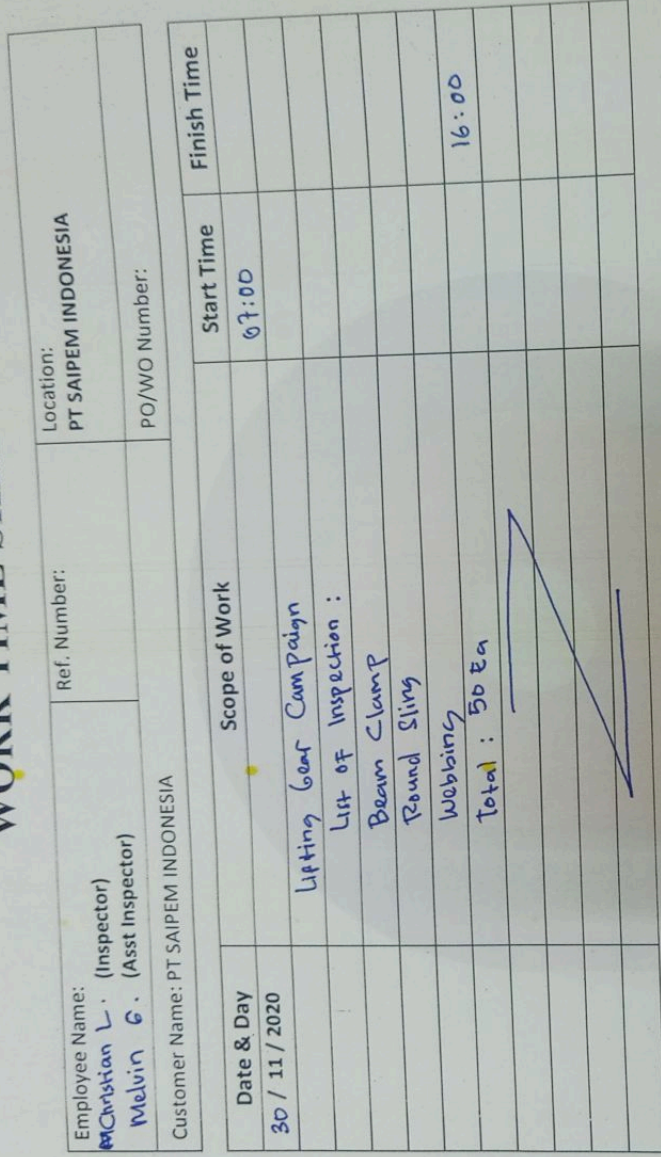 WORK TIME
Employee Name:
Christian L. (Inspector)
Melvin G. (Asst Inspector)
Ref. Number:
Location:
PT SAIPEM INDONESIA
Customer Name: PT SAIPEM INDONESIA
PO/WO Number:
Date & Day Scope of Work Start Time Finish Time
30 / 11 / 2020 07:00
Lifting Gear Campaign
List of Inspection :
Beam Clamp
Round Sling
Webbing 16:00
Total : 50 Ea